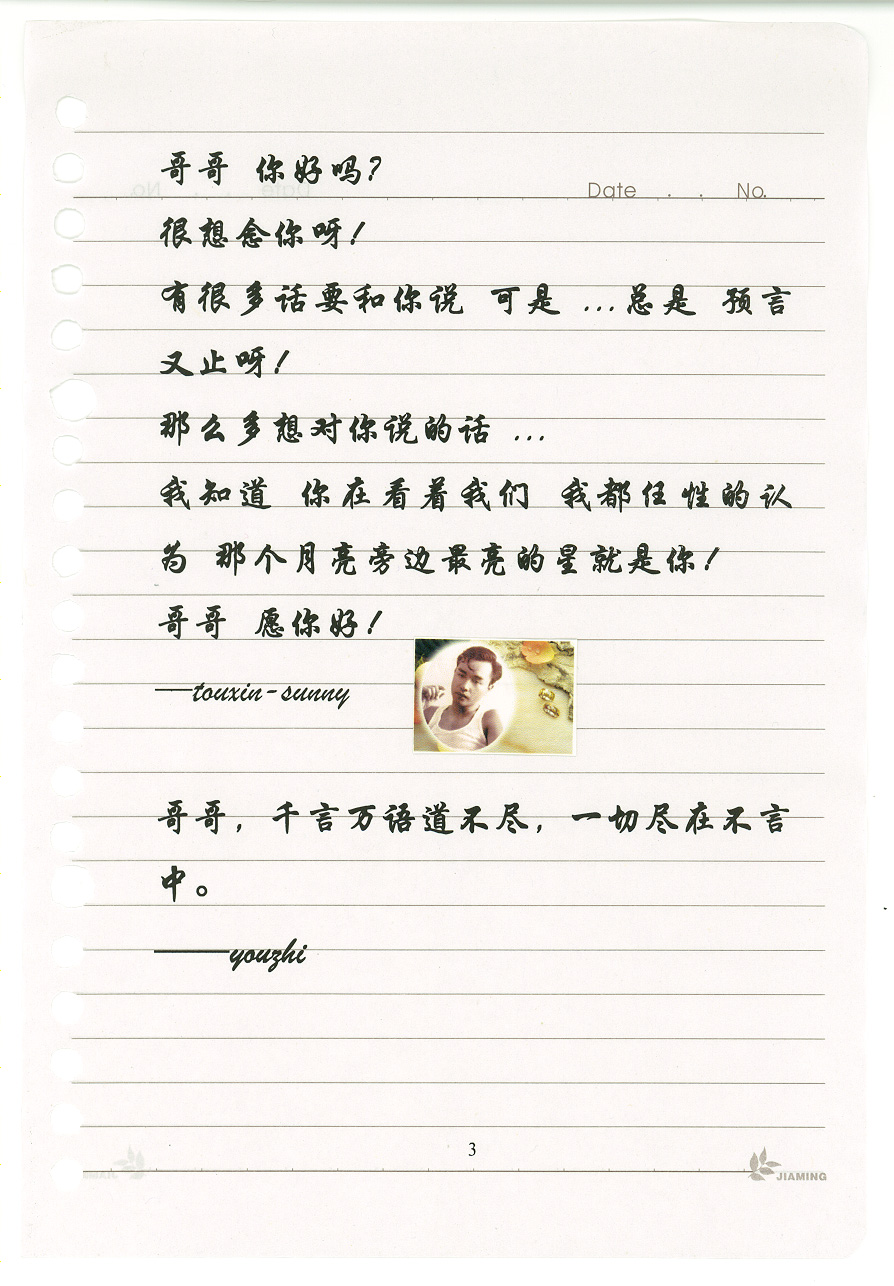 哥哥 你好吗?
Date . . No.
很想念你呀!
有很多话要和你说 可是 ...总是 预言
又止呀!
那么多想对你说的话 ...
我知道 你在看着我们 我都任性的认
为 那个月亮旁边最亮的星就是你!
哥哥 愿你好!
—touxin-sunny
哥哥，千言万语道不尽，一切尽在不言
中。
——youzhi
3
JIAMING